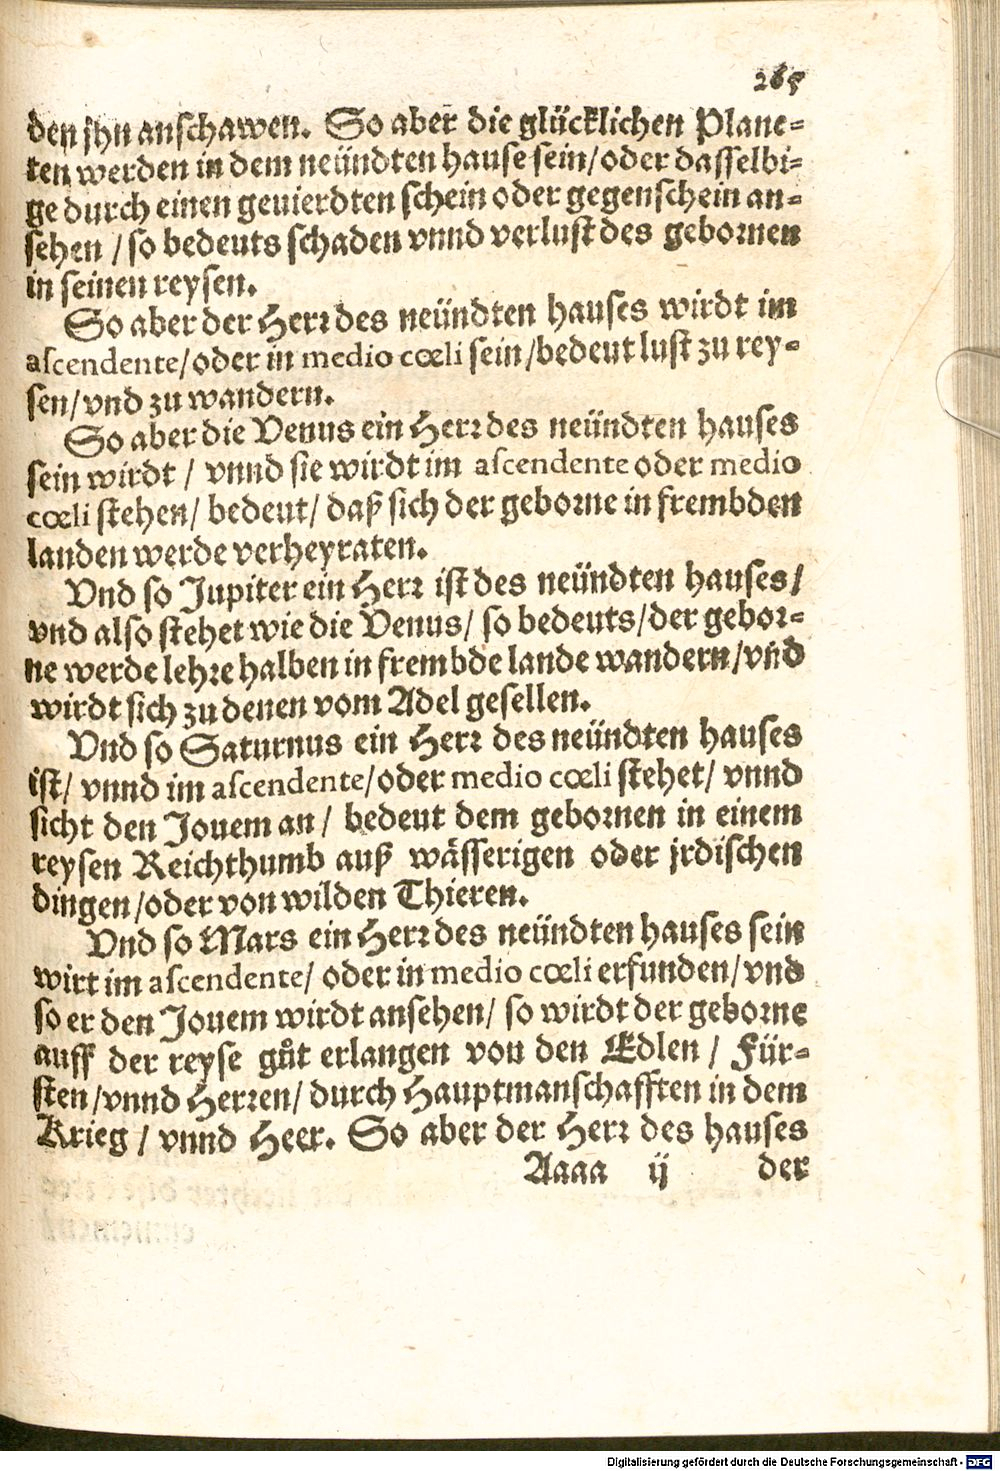 265
den jhn anschawen. So aber die glücklichen Plane-
ten werden in dem neündten hause sein/ oder dasselbi-
ge durch einen gevierdten schein oder gegenschein an-
sehen / so bedeuts schaden vnnd verlust des gebornen
in seinen reysen.
So aber der Herr des neündten hauses wirdt im
ascendente/ oder in medio cœli sein/ bedeut lust zu rey-
sen/ vnd zu wandern.
So aber die Venus ein Herr des neündten hauses
sein wirdt / vnnd sie wirdt im ascendente oder medio
cœli stehen/ bedeut/ daß sich der geborne in frembden
landen werde verheyraten.
Vnd so Jupiter ein Herr ist des neündten hauses/
vnd also stehet wie die Venus/ so bedeuts/ der gebor-
ne werde lehre halben in frembde lande wandern/ vñd
wirdt sich zu denen vom Adel gesellen.
Vnd so Saturnus ein Herr des neündten hauses
ist/ vnnd im ascendente/ oder medio cœli stehet/ vnnd
sicht den Jouem an/ bedeut dem gebornen in einem
reysen Reichthumb auß wässerigen oder jrdischen
dingen/ oder von wilden Thieren.
Vnd so Mars ein Herr des neündten hauses sein
wirt im ascendente/ oder in medio cœli erfunden/ vnd
so er den Jouem wirdt ansehen/ so wirdt der geborne
auff der reyse gůt erlangen von den Edlen / Für-
sten/ vnnd Herren/ durch Hauptmanschafften in dem
Krieg / vnnd Heer. So aber der Herr des hauses
Aaaa ij der
Digitalisierung gefördert durch die Deutsche Forschungsgemeinschaft - DFG